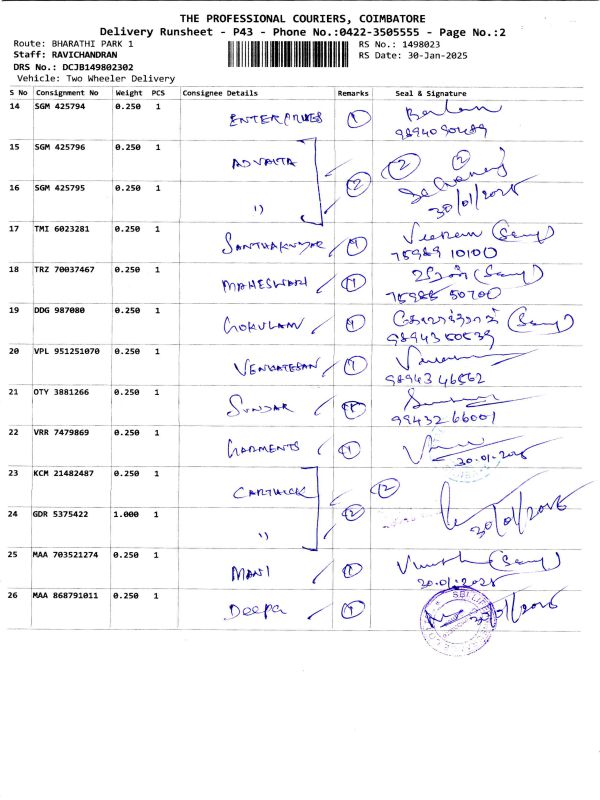 THE PROFESSIONAL COURIERS, COIMBATORE
Delivery Runsheet - P43 - Phone No.:0422-3505555 - Page No.:2
Route: BHARATHI PARK 1 RS No.: 1498023
Staff: RAVICHANDRAN RS Date: 30-Jan-2025
DRS No.: DCJB149802302
Vehicle: Two Wheeler Delivery
S No Consignment No Weight PCS Consignee Details Remarks Seal & Signature
14 SGM 425794 0.250 1 ENTERPRISES 1
9894090489
15 SGM 425796 0.250 1 ADVAITA 2 2
16 SGM 425795 0.250 1 11 2
30/01/2025
17 TMI 6023281 0.250 1 SANTHAKUMAR 1 (Samy)
75989 10100
18 TRZ 70037467 0.250 1 MAHESWARI 1 (Samy)
75985 50700
19 DDG 987080 0.250 1 GOKULAM 1 (Samy)
9894350539
20 VPL 951251070 0.250 1 VENKATESAN 1
98943 46562
21 OTY 3881266 0.250 1 SUNDAR 1
99432 66001
22 VRR 7479869 0.250 1 GARMENTS 1
30.01.2025
23 KCM 21482487 0.250 1 CARTHICK 2
24 GDR 5375422 1.000 1 11 2
30/01/2025
25 MAA 703521274 0.250 1 MANI 1 (Samy)
30.01.2025
26 MAA 868791011 0.250 1 Deepa 1 30/01/2025
SBI LIFE